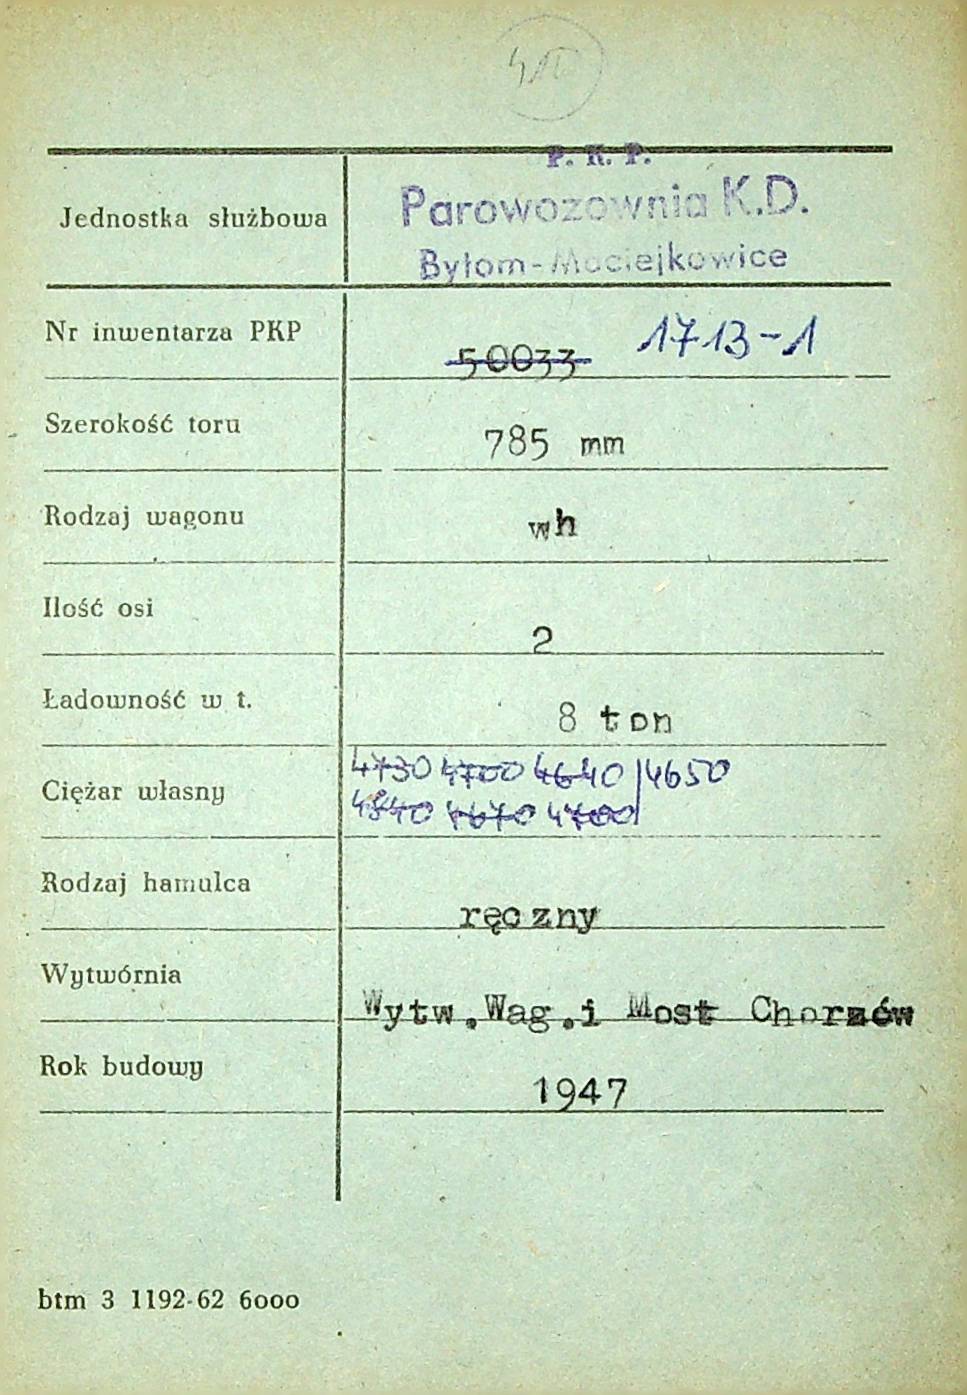 P. K. P.
Jednostka służbowa Parowozownia K.D.
Bytom-Maciejkowice
Nr inwentarza PKP 50033 1713-1
Szerokość toru 785 mm
Rodzaj wagonu wh
Ilość osi 2
Ładowność w t. 8 ton
4730 4700 4640 4650
Ciężar własny 4840 4670 4700
Rodzaj hamulca ręczny
Wytwórnia Wytw.Wag.i Most Chorzów
Rok budowy 1947
btm 3 1192-62 6000